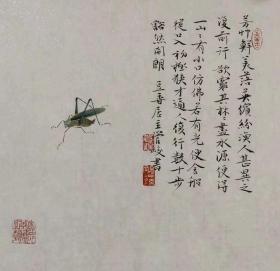 芳草鲜美落英缤纷渔人甚异之
复前行欲穷其林林尽水源便得
一山山有小口仿佛若有光便舍船
从口入初极狭才通人复行数十步
豁然开朗